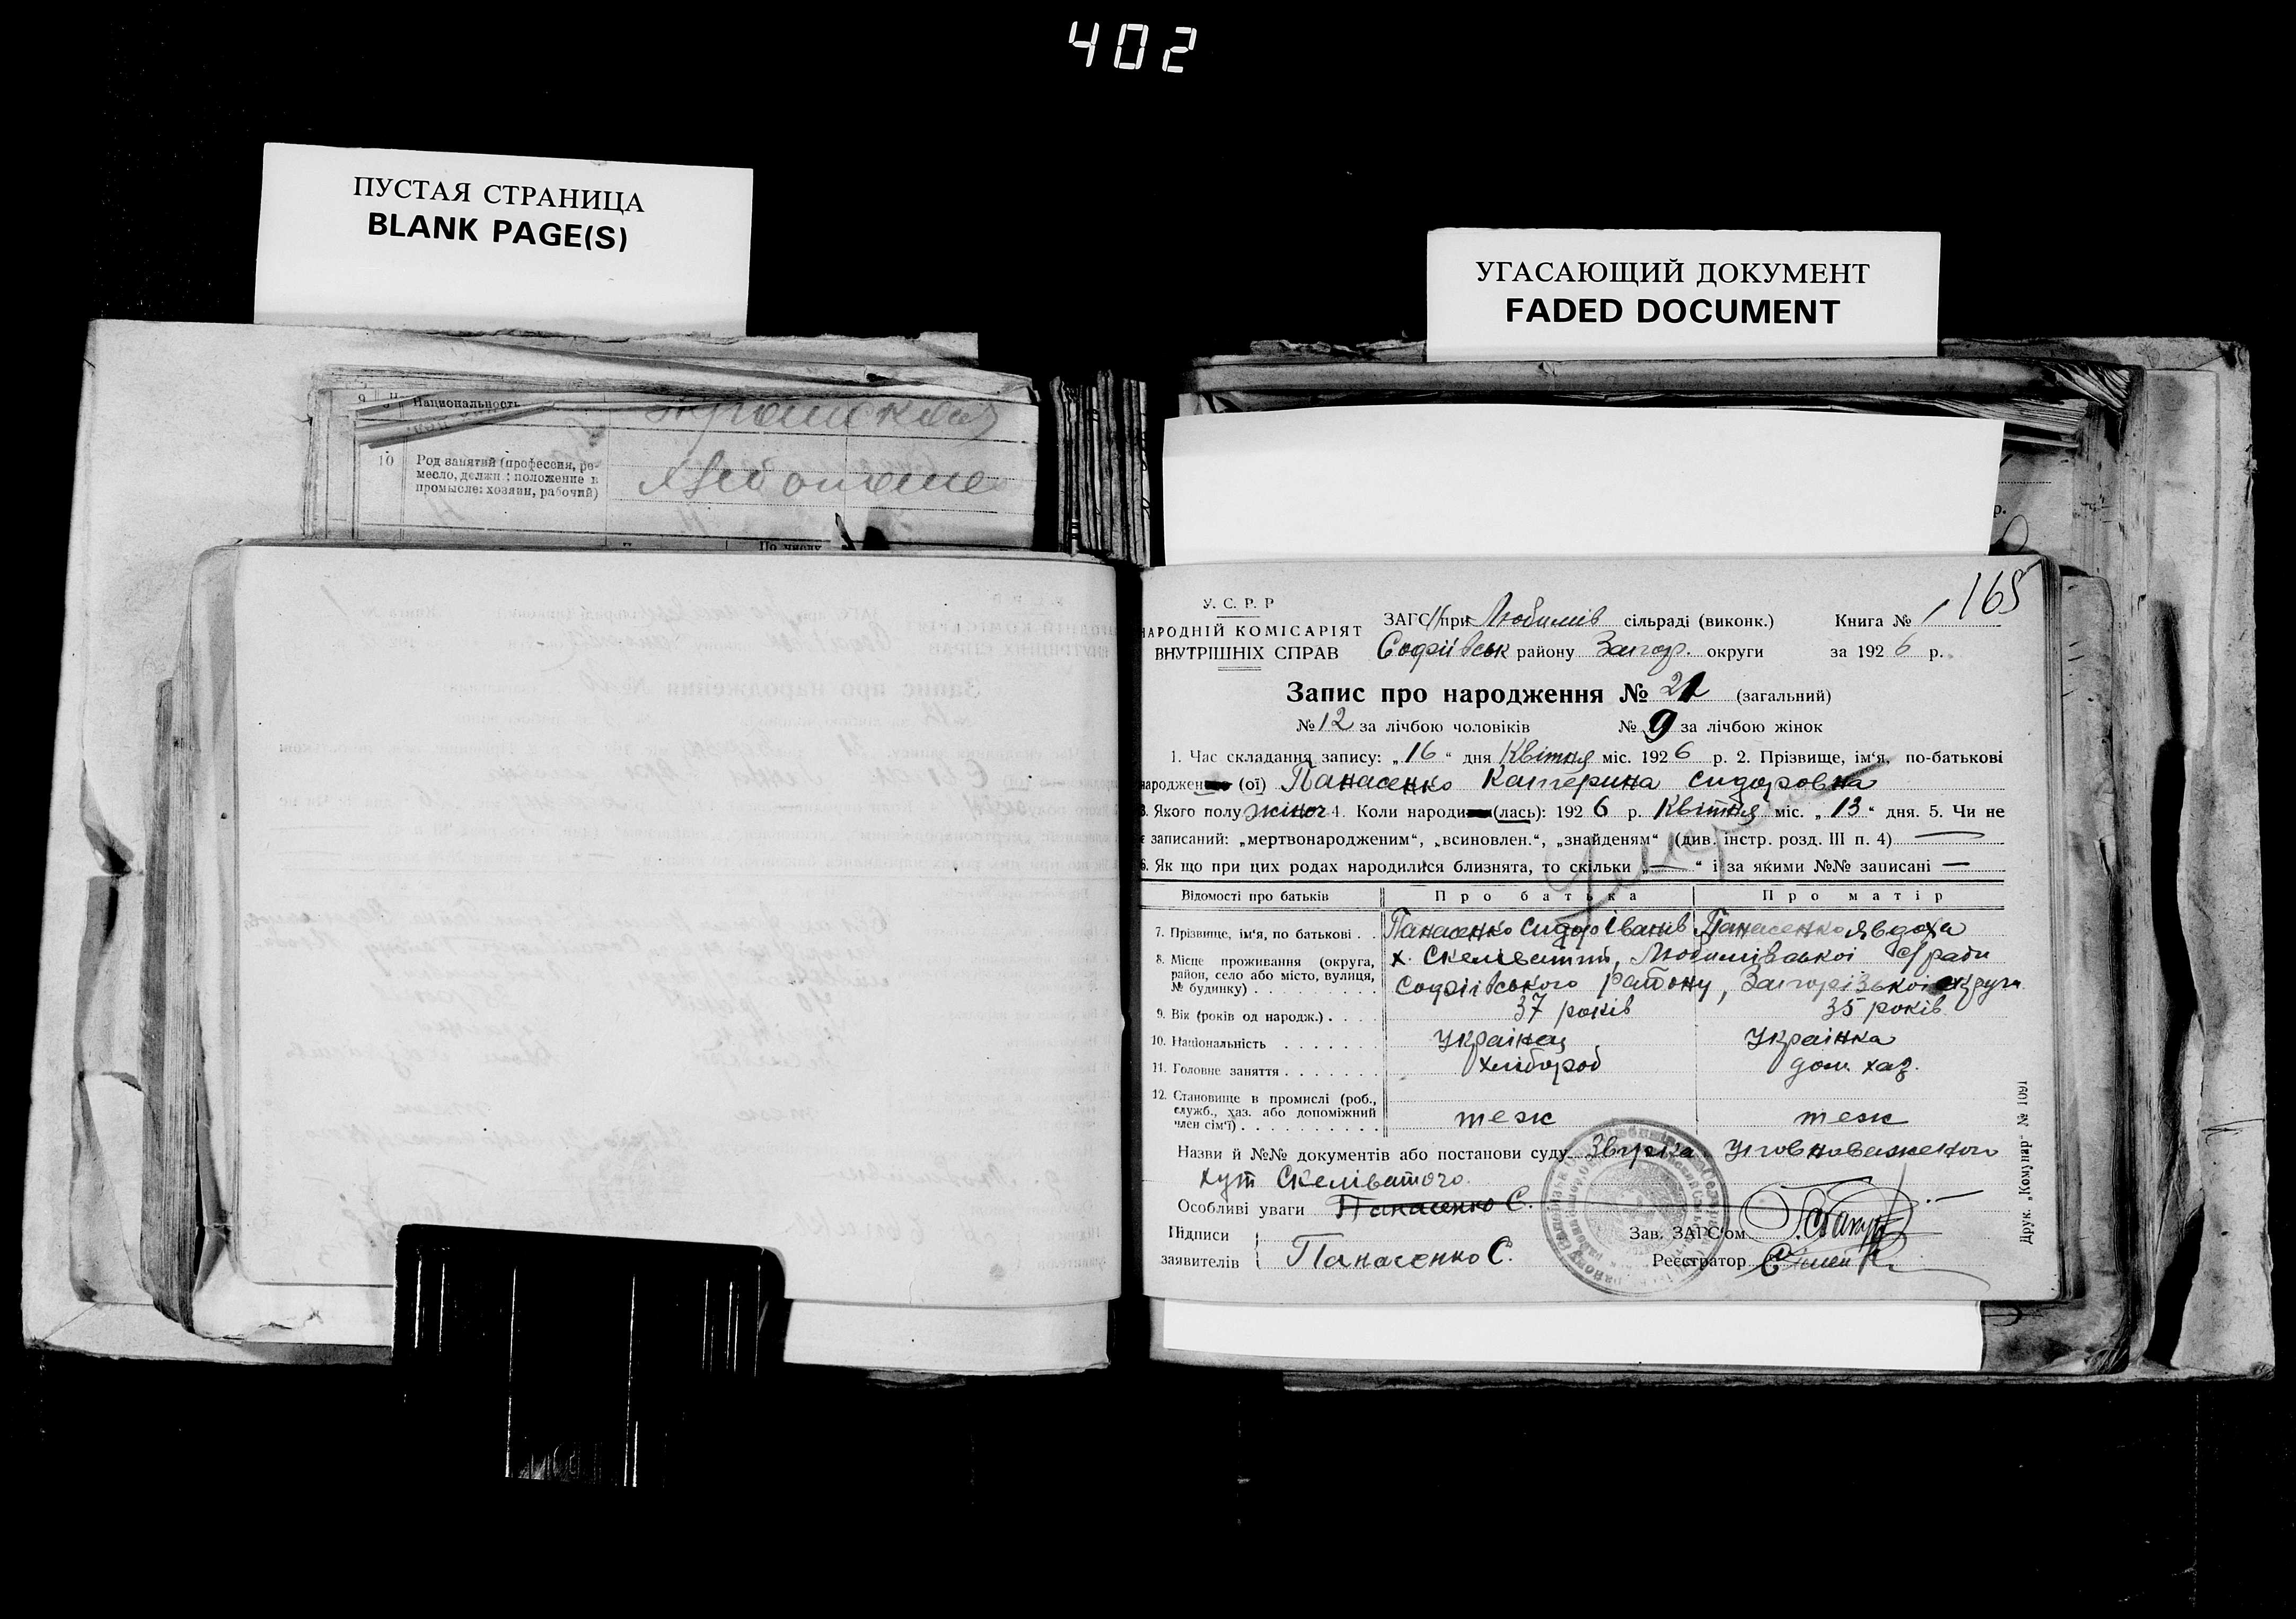 402
ПУСТАЯ СТРАНИЦА
BLANK PAGE(S)
УГАСАЮЩИЙ ДОКУМЕНТ
FADED DOCUMENT
9 Национальность
10 Род занятий (профессия, ре-
месло, должн.; положение в
промысле: хозяин, рабочий)
По числу
165
У. С. Р. Р
НАРОДНІЙ КОМІСАРІЯТ
ВНУТРІШНІХ СПРАВ
ЗАГС при Любимів сільраді (виконк.) Книга № 1
Софіївськ району Запор. округи за 1926 р.
Запис про народження № 21 (загальний)
№ 12 за лічбою чоловіків № 9 за лічбою жінок
1. Час складання запису: „16“ дня Квітня міс. 1926 р. 2. Прізвище, ім'я, по-батькові
народжен (ої) Панасенко Катерина Сидоровна
3. Якого полу жіноч 4. Коли народи (лась): 1926 р. Квітня міс. „13“ дня. 5. Чи не
є записаний: „мертвонародженим“, „всиновлен.“, „знайденям“ (див. інстр. розд. III п. 4) —
6. Як що при цих родах народилися близнята, то скільки „—“ і за якими №№ записані —
Відомості про батьків Про батька Про матір
7. Прізвище, ім'я, по батькові . . Панасенко Сидор Іванів Панасенко Явдоха
8. Місце проживання (округа,
район, село або місто, вулиця,
№ будинку) . . . . . . . . .
х. Скеліватий, Любимівської с/ради
Софіївського району, Запорізької округи
9. Вік (років од народж.) . . . . 37 років 35 років
10. Національність . . . . . . . Українец Українка
11. Головне заняття . . . . . . . хлібороб дом. хаз.
12. Становище в промислі (роб.,
служб., хаз. або допоміжний
член сім'ї) . . . . . . . . . . теж теж
Назви й №№ документів або постанови суду Уповноваженого
хут Скеліватого
Особливі уваги Панасенко С.
Підписи
заявителів Панасенко С.
Зав. ЗАГС'ом
Реєстратор
Друк. „Комунар“ № 1091